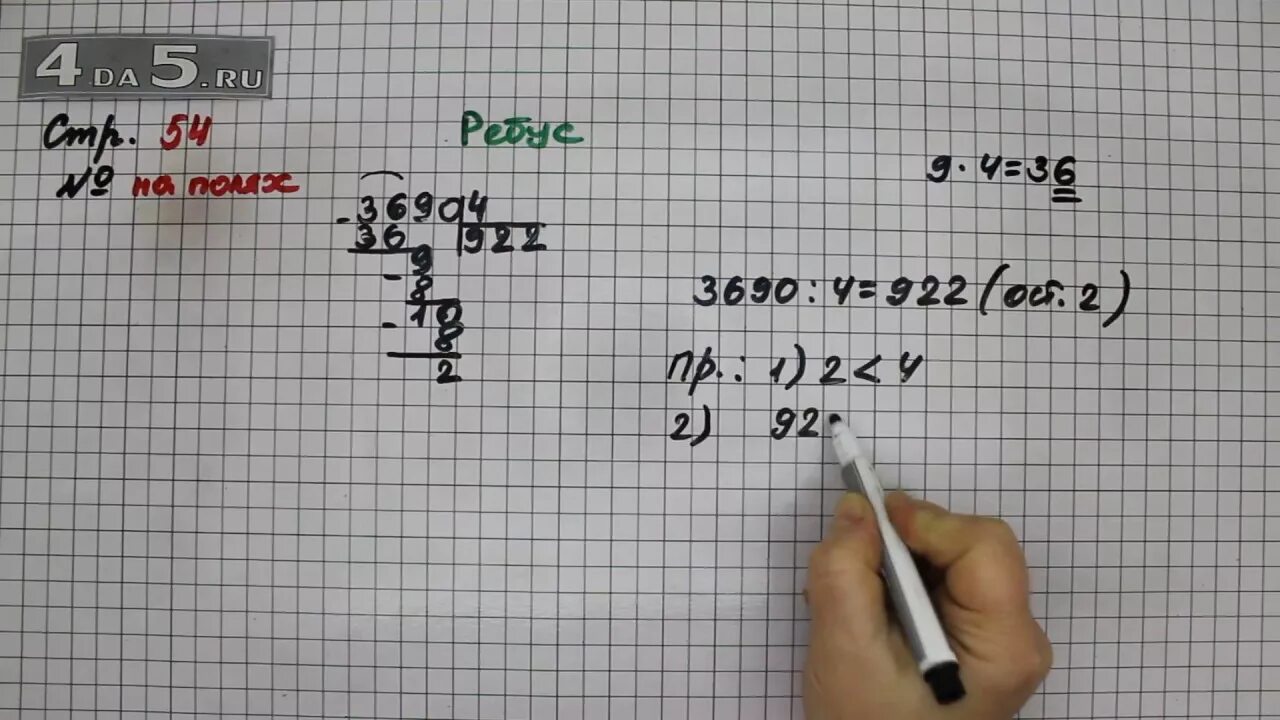 4DA5.RU
Стр. 54
№ на полях
Ребус
9 · 4 = 36
- 3690 4
36 922
9
- 8
10
- 8
2
3690 : 4 = 922 (ост. 2)
пр.: 1) 2 < 4
2) 92